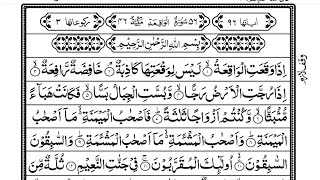 اٰیاتها ۹۶ ﴿۵۶﴾ سُوْرَةُ الْوَاقِعَةِ ﴿۴۶﴾ رکوعاتها ۳
بِسْمِ اللّٰهِ الرَّحْمٰنِ الرَّحِیْمِ
اِذَا وَقَعَتِ الْوَاقِعَةُ ۙ لَیْسَ لِوَقْعَتِهَا كَاذِبَةٌ ۘ خَافِضَةٌ رَّافِعَةٌ ۙ
اِذَا رُجَّتِ الْاَرْضُ رَجًّا ۙ وَّبُسَّتِ الْجِبَالُ بَسًّا ۙ فَكَانَتْ هَبَآءً
مُّنْۢبَثًّا ۙ وَّكُنْتُمْ اَزْوَاجًا ثَلٰثَةً ؕ فَاَصْحٰبُ الْمَیْمَنَةِ ۙ مَاۤ اَصْحٰبُ
الْمَیْمَنَةِ ؕ وَاَصْحٰبُ الْمَشْـَٔمَةِ ۙ مَاۤ اَصْحٰبُ الْمَشْـَٔمَةِ ؕ وَالسّٰبِقُوْنَ
السّٰبِقُوْنَ ۚ اُولٰٓئِكَ الْمُقَرَّبُوْنَ ۚ فِیْ جَنّٰتِ النَّعِیْمِ ۙ ثُلَّةٌ مِّنَ
وقف لازم